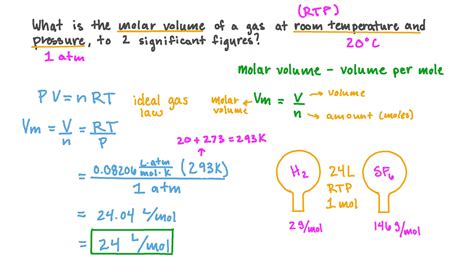 (RTP)
What is the molar volume of a gas at room temperature and
pressure, to 2 significant figures?
20°C
1 atm
molar volume - volume per mole
PV = nRT ideal gas law
molar volume Vm = V/n → volume
→ amount (moles)
Vm = V/n = RT/P
20 + 273 = 293K
= 0.08206 L·atm/mol·K (293K)
1 atm
H₂ 24L RTP 1 mol SF₆
= 24.04 L/mol
2g/mol 146g/mol
= 24 L/mol